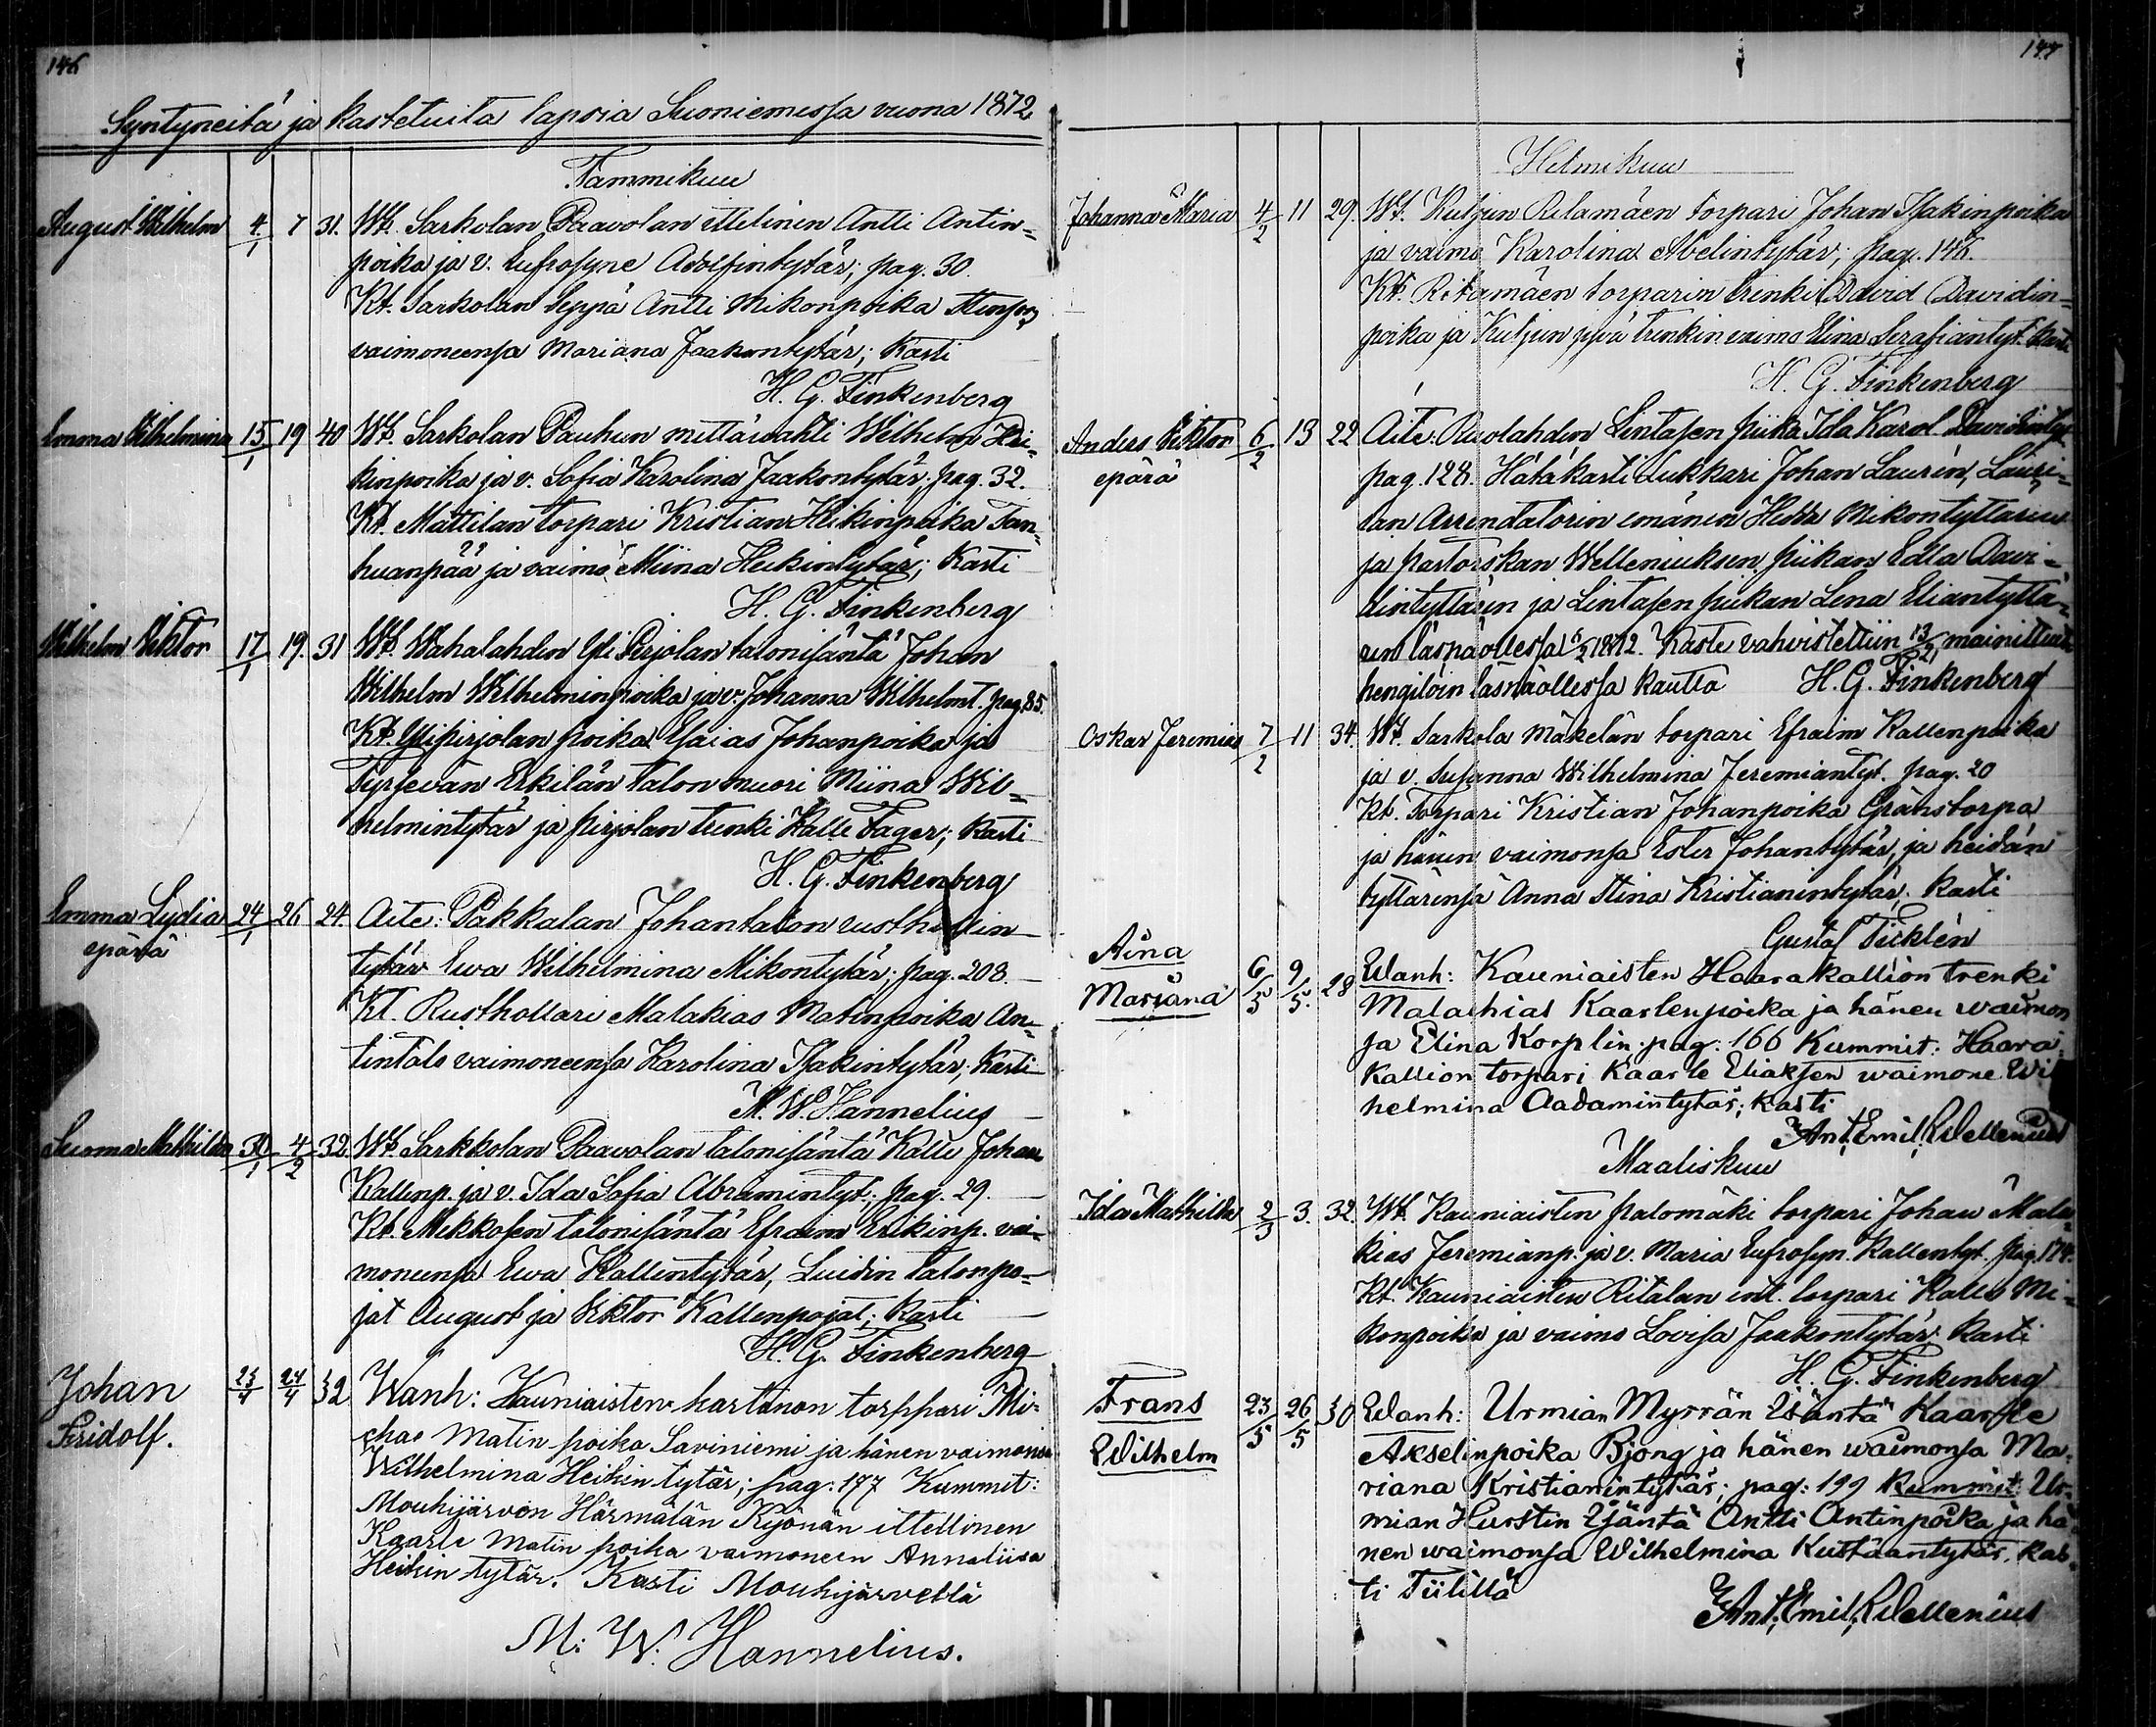 146
Syntyneitä ja kastetuita lapsia Suoniemessa vuona 1872
Tammikuu
August Wilhelm 4/1 7 31. Wt. Sarkolan Paavolan ittelinen Antti Antin=
poika ja v. Eufrosyne Adolfintytär; pag. 30.
Kt. Sarkolan Seppä Antti Mikonpoika Stenfors
vaimoneensa Mariana Jaakontytär; Kasti
H. G. Finkenberg
Emma Wilhelmina 15/1 19 40 Wt. Sarkolan Pauhun mettävahti Wilhelm Hei=
kinpoika ja v. Sofia Karolina Jaakontytär; pag. 32.
Kt. Mattilan torpari Kristian Heikinpoika Tan=
huanpää ja vaimo Miina Heikintytär; Kasti
H. G. Finkenberg
Wilhelm Viktor 17/1 19. 31 Wt. Wahalahden Yli Pirjolan talonisäntä Johan
Wilhelm Wilhelminpoika ja v. Johanna Wilhelmt. pag. 85.
Kt. Ylipirjolan poika Esaias Johanpoika ja
Tyrvään Erkilän talon muori Miina Wil=
helmintytär ja pirjolan trenki Kalle Fager; Kasti
H. G. Finkenberg
Emma Lydia 24/1 26 24. Äite: Pakkalan Johantalon rusthollin
epärä
tytär Ewa Wilhelmina Mikontytär; pag. 208.
Kt. Rusthollari Malakias Matinpoika An=
tintalo vaimoneensa Karolina Isakintytär; Kasti
M. W. Hannelius
Suoma Mathilda 30/1 4/2 32. Wt. Sarkkolan Paavolan talonisäntä Kalle Johan
Kallenp. ja v. Ida Sofia Abramintyt.; pag. 29.
Kt. Mekkosen talonisäntä Efraim Erikinp. vai=
moneensa Ewa Kallentytär, Luidin talonpo=
jat August ja Viktor Kallenpojat; Kasti
H. G. Finkenberg
Johan 23/4 24/4 32 Wanh: Kauniaisten kartanon torppari Mi=
Fridolf.
chao Matin poika Saviniemi ja hänen vaimonsa
Wilhelmina Heikin tytär; pag: 177 Kummit:
Mouhijärven Härmälän Kyönän ittellinen
Kaarle Matin poika vaimoneen Annaliisa
Heikin tytär. Kasti Mouhijärvellä
M: W. Hannelius.
147
Helmikuu
Johanna Maria 4/2 11 29. Wt. Kuljun Rilamäen torpari Johan Isakinpoika
ja vaimo Karolina Abelintytär; pag. 146.
Kt. Ritamäen torparin trenki David Davidin=
poika ja Kuljun trenkin vaimo Elina Serafiantyt. Kasti
H. G. Finkenberg
Anders Viktor 6/2 13 22 Äite: Ruolahden Lintasen piika Ida Karol. Davidintyt
epärä
pag. 128. Hätäkasti Lukkari Johan Laurèn, Lauri=
lan Arrendatorin emänen Hedda Mikontyttären
ja pastorskan Welleniuksen piikan Edla Davi=
dintyttären ja Lintasen piikan Lena Eliantyttä=
ren läsnäollessa 6/2 1872. Kaste vahvistettiin 13/2, mainittuin
hengiloin läsnäollessa kautta H. G. Finkenberg
Oskar Jeremias 7/2 11 34. Wt. Sarkola Mäkelän torpari Efraim Kallenpoika
ja v. Susanna Wilhelmina Jeremiantyt. pag. 20
Kt. Torpari Kristian Johanpoika Gränstorpa
ja hänen vaimonsa Ester Johantytär, ja heidän
tyttärensä Anna Stina Kristianintytär; Kasti
Gustaf Ticklén
Aina
Mariana 6/5 9/5. 28 Wanh: Kauniaisten Haarakallion trenki
Malachias Kaarlenpoika ja hänen waimon
sa Elina Korplin; pag: 166 Kummit: Haara
kallion torpari Kaarle Eliaksen waimone Wil
helmina Aadamintytär; Kasti
Ant. Emil. Wellenius
Maaliskuu
Ida Mathilda 2/3 3. 32. Wt. Kauniaisten palomäki torpari Johan Mala=
kias Jeremianp. ja v. Maria Eufrosyn. Kallentyt. pag. 174.
Kt. Kauniaisten Ritalan ent. torpari Kalle Mi=
konpoika ja vaimo Lovisa Jaakontytär. Kasti
H. G. Finkenberg
Frans 23/5 26/5 30 Wanh: Urmian Myrrän Isäntä Kaarle
Wilhelm
Akselinpoika Bjong ja hänen waimonsa Ma=
riana Kristianintytär; pag: 199 Kummit: Ur=
mian Hurstin Isäntä Antti Antinpoika ja hä
nen waimonsa Wilhelmina Kustaantytär. Kas=
ti Tiilillä
Ant. Emil. Wellenius